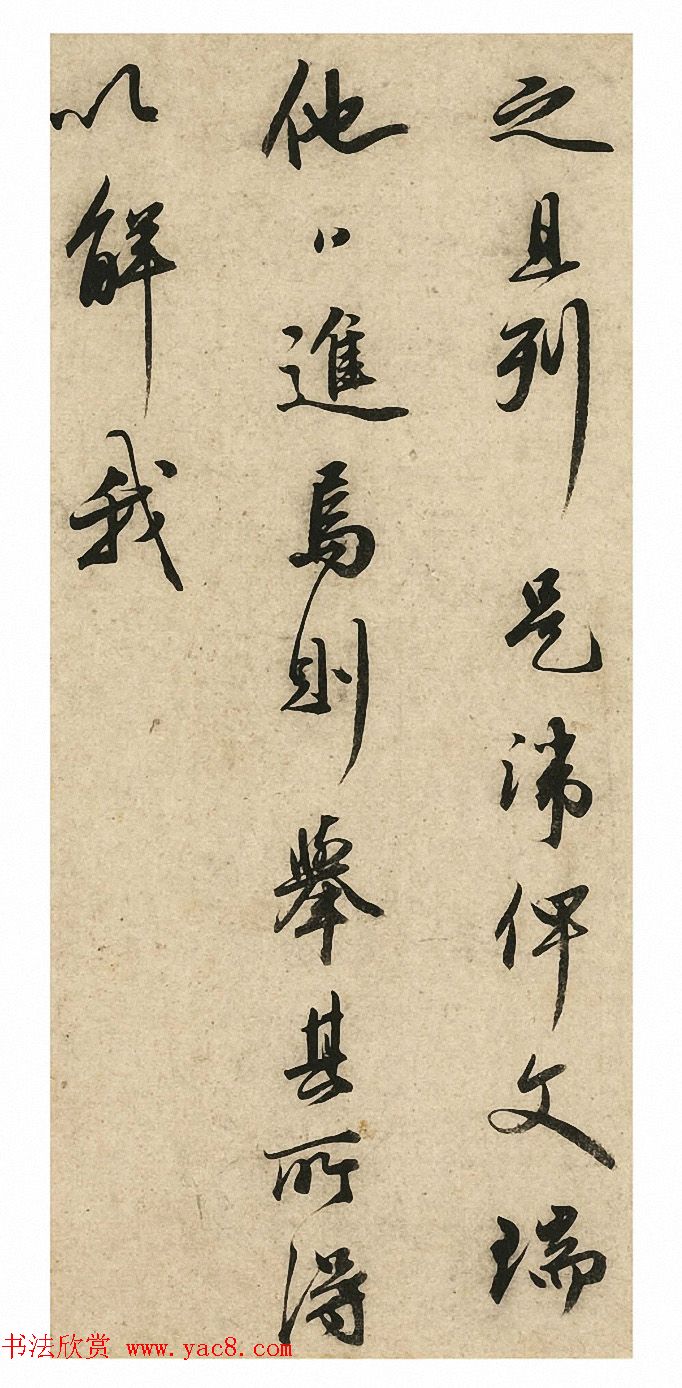 之且列是俾文瑞
他日進焉則舉其所得
以解我
书法欣赏 www.yac8.com